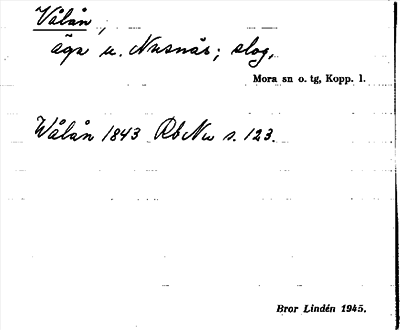 Vålån ;
äga u. Nusnäs; slog,
Mora sn o. tg, Kopp. l.
Wålån 1843 Rb Nu s. 123.
Bror Lindén 1945.